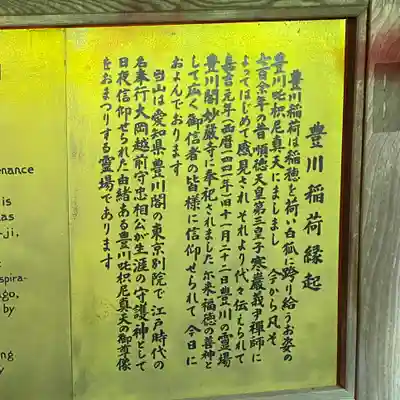 豊川稲荷縁起
豊川稲荷は稲穂を荷い白狐に跨り給うお姿の
豊川吒枳尼真天にましまし 今から凡そ
七百余年の昔 順徳天皇第三皇子 寒巌義尹禅師に
よってはじめて感見され それより代々伝えられて
嘉吉元年(西暦一四四一年)十一月二十二日豊川の霊場
豊川閣妙厳寺に奉祀されました 尓来福徳の善神と
して広く御信者の皆様に信仰せられて 今日に
およんでおります
当山は愛知県豊川閣の東京別院で 江戸時代の
名奉行大岡越前守忠相公が生涯の守護神として
日夜信仰せられた由緒ある豊川吒枳尼真天の御尊像
をおまつりする霊場であります
enance
is
as
-ji,
spira-
go,
by
ng
en